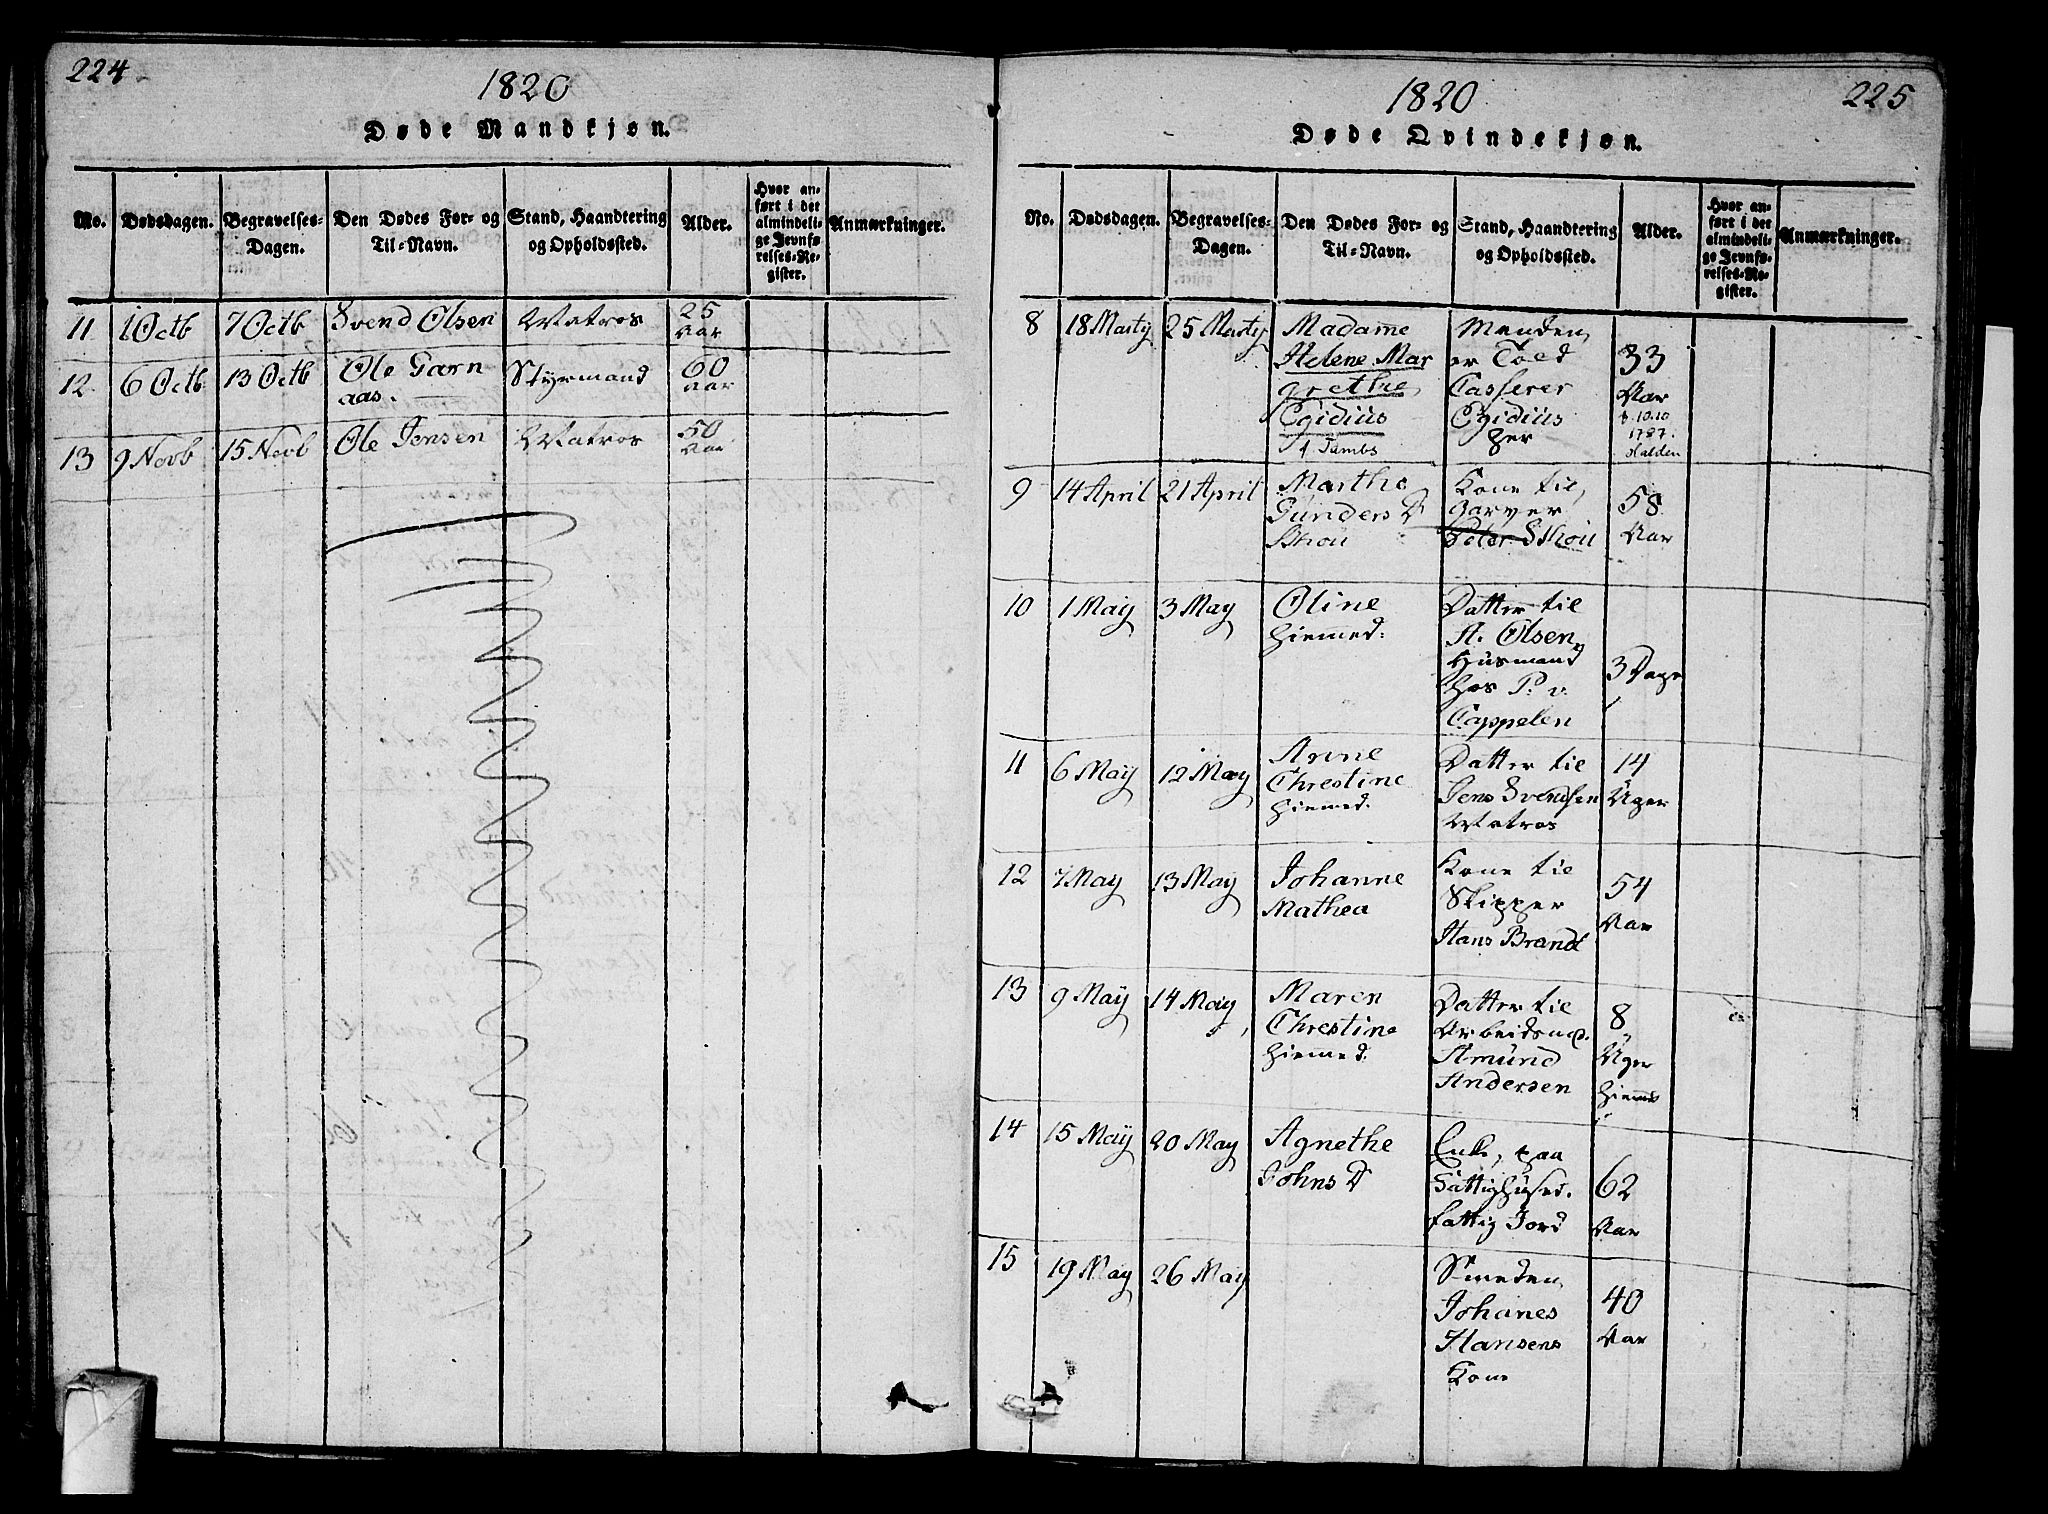 224
1820
Døde Mandkjøn.
No.
Dødsdagen.
Begravelses-
Dagen.
Den Dødes For- og
Til-Navn.
Stand, Haandtering
og Opholdssted.
Alder.
Hvor an-
ført i det
almindeli-
ge Jevnfø-
relses-Re-
gister.
Anmærkninger.
11
1 Octb
7 Octb
Svend Olsen
Matros
25
Aar
12
6 Octb.
13 Octb
Ole Garn
aas.
Styrmand
60
Aar
13
9 Novb
15 Novb
Ole Jensen
Matros
50
Aar
1820
225
Døde Qvindekjøn.
No.
Dødsdagen.
Begravelses-
Dagen.
Den Dødes For- og
Til-Navn.
Stand, Haandtering
og Opholdssted.
Alder.
Hvor an-
ført i det
almindeli-
ge Jevnfø-
relses-Re-
gister.
Anmærkninger.
8
18 Marty
25 Marty
Madame
Helene Mar
grethe
Egidius
f. Tambs
Manden
er Told
Casserer
Egidius
her
33
Aar
f. 10.10
1787.
Halden
9
14 April
21 April
Marthe
Gunders D
Skou
Kone til
Garver
Peter Skou
58
Aar
10
1 May
3 May
Oline
hiemmed:
Datter til
A. Olsen
Huusmand
hos P: v:
Cappelen
3 Dage
11
6 May
12 May
Anne
Chrestine
hiemmed:
Datter til
Jens Svendsen
Matros
14
Uger
12
7 May
13 May
Johanne
Mathea
Kone til
Skipper
Hans Brandt
54
Aar
13
9 May
14 May
Maren
Chrestine
hiemmed:
Datter til
Arbeidsmd.
Amund
Andersen
8
Uger
hiemmd
14
15 May
20 May
Agnethe
Johns D
Enke, paa
Fattighused.
fattig Jord
62
Aar
15
19 May
26 May
Smeden
Johanes
Hansens
Kone
40
Aar